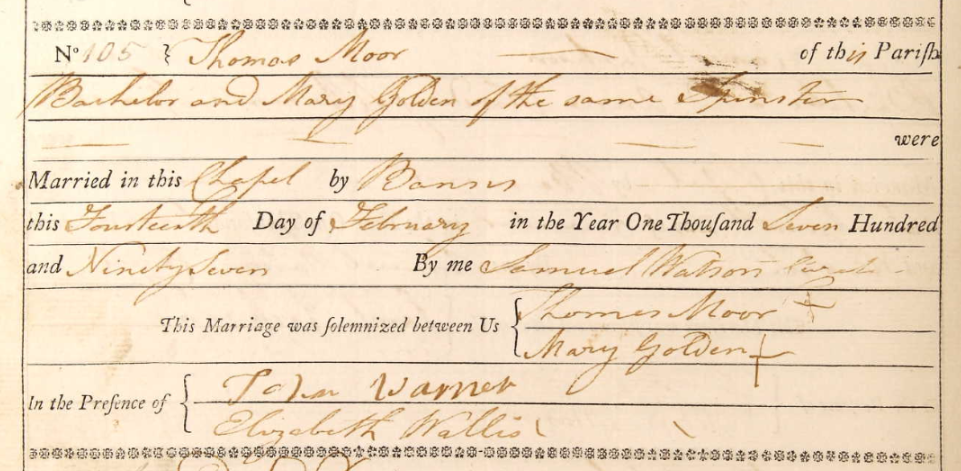 No 105 } Thomas Moor — of this Pariſh
Bachelor and Mary Golden of the same Spinster
— — — — were
Married in this Chapel by Banns
this Fourteenth Day of February in the Year One Thouſand Seven Hundred
and Ninety Seven By me Samuel Watson Curate
This Marriage was ſolemnized between Us { Thomas Moor +
Mary Golden +
In the Preſence of { John Warner
Elizabeth Wallis